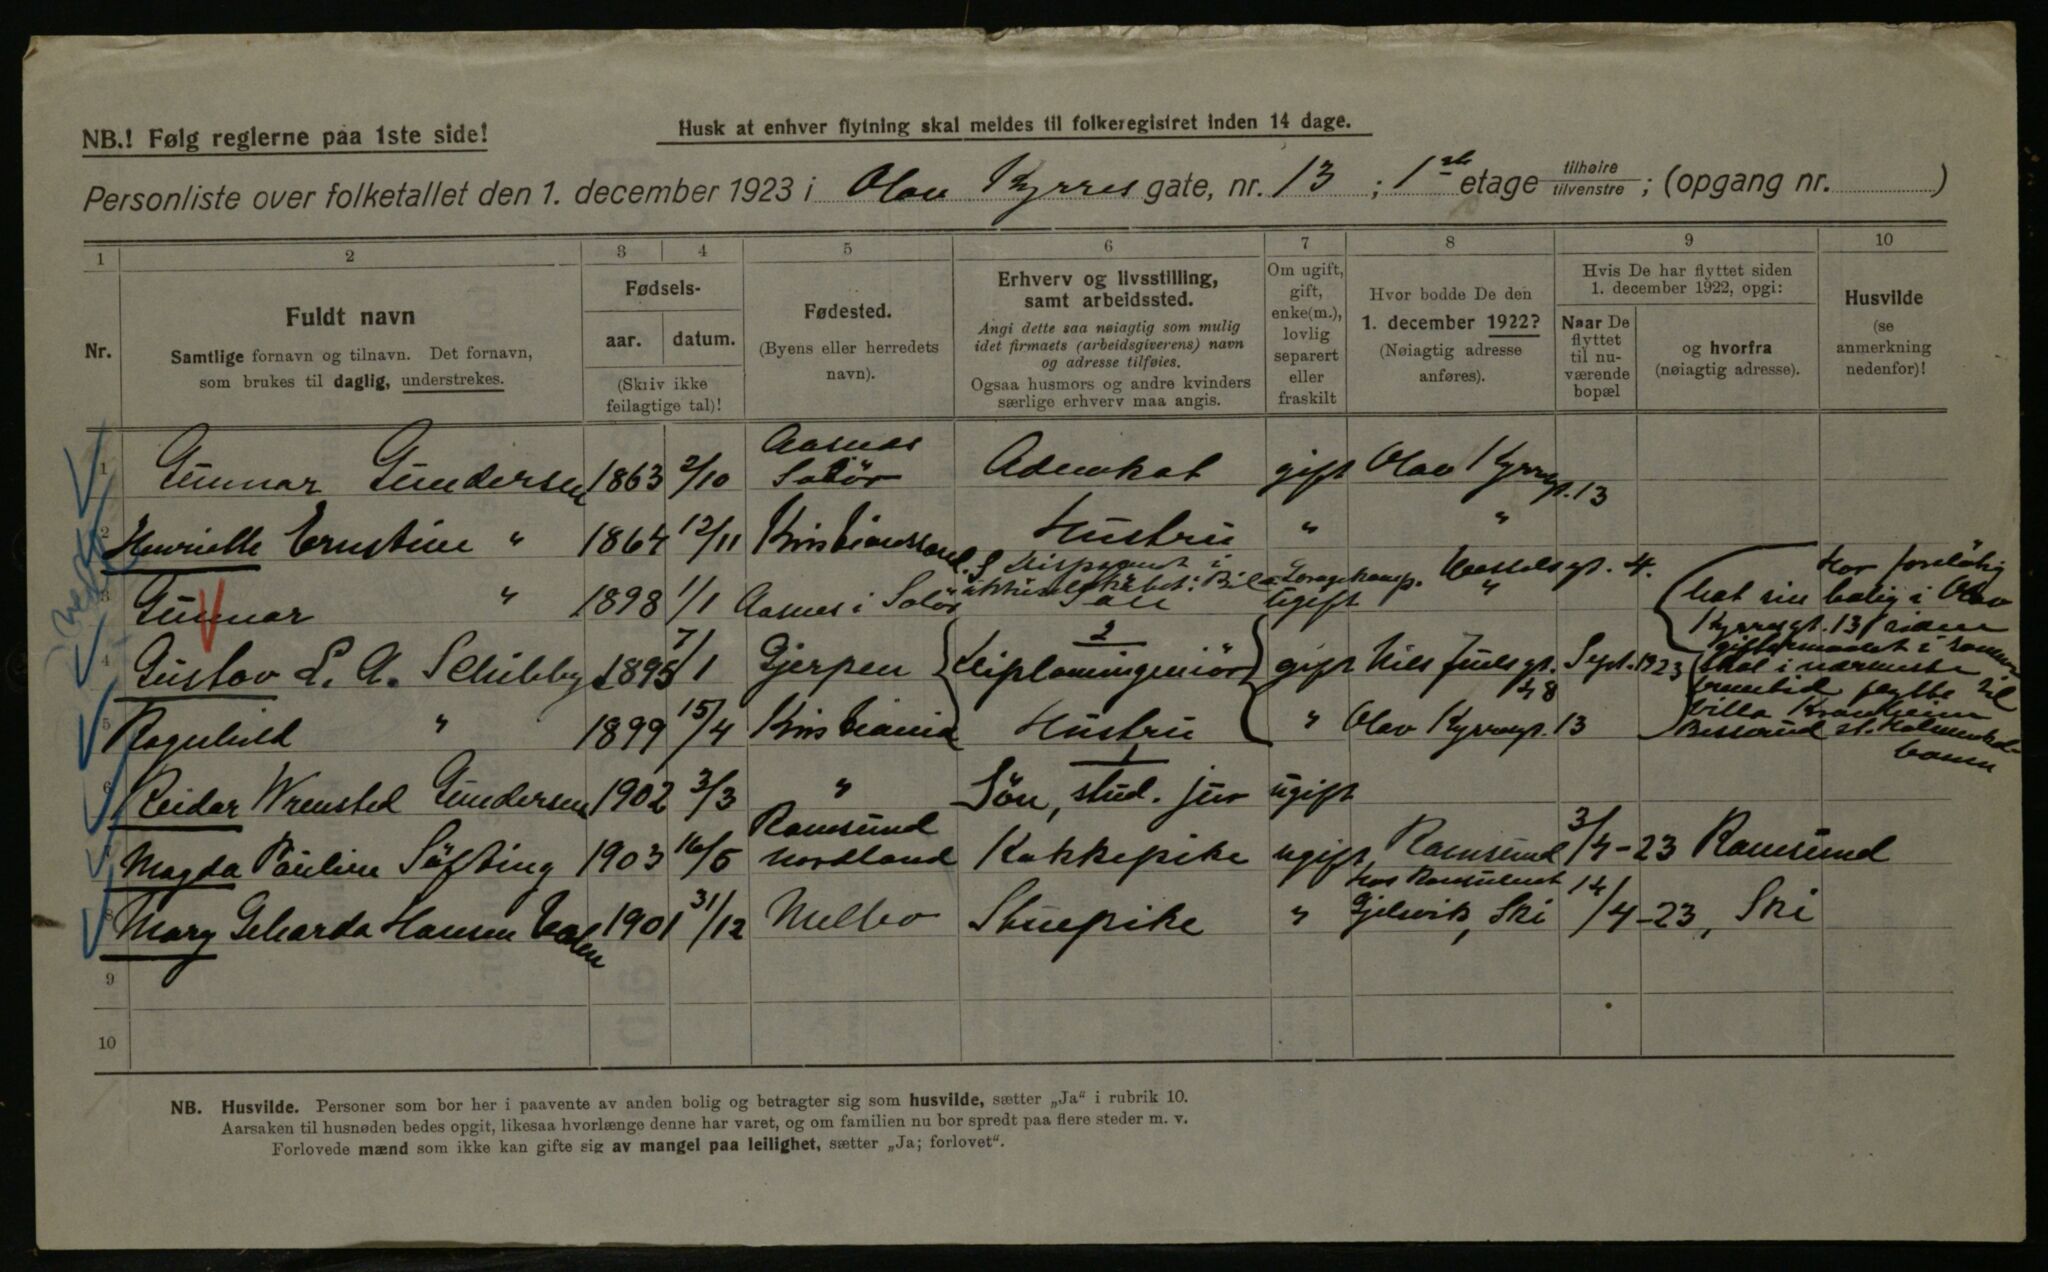 NB.! Følg reglerne paa 1ste side!
Husk at enhver flytning skal meldes til folkeregistret inden 14 dage.
Personliste over folketallet den 1. december 1923 i Olav Kyrres gate, nr. 13 ; 1ste etage tilhøire tilvenstre ; (opgang nr. )
1 2 3 4 5 6 7 8 9 10
Nr.
Fuldt navn
Samtlige fornavn og tilnavn. Det fornavn,
som brukes til daglig, understrekes.
Fødsels-
aar. datum.
(Skriv ikke
feilagtige tal)!
Fødested.
(Byens eller herredets
navn).
Erhverv og livsstilling,
samt arbeidssted.
Angi dette saa nøiagtig som mulig
idet firmaets (arbeidsgiverens) navn
og adresse tilføies.
Ogsaa husmors og andre kvinders
særlige erhverv maa angis.
Om ugift,
gift,
enke(m.),
lovlig
separert
eller
fraskilt
Hvor bodde De den
1. december 1922?
(Nøiagtig adresse
anføres).
Hvis De har flyttet siden
1. december 1922, opgi:
Naar De
flyttet
til nu-
værende
bopæl
og hvorfra
(nøiagtig adresse).
Husvilde
(se
anmerkning
nedenfor)!
1 Gunnar Gundersen 1863 2/10 Aasnes Solör Advokat gift Olav Kyrresgt. 13
2 Henriette Ernstine " 1864 12/11 Kristianssand. S Hustru " "
3 Gunnar " 1898 1/1 Aasnes i Solör Disponent i aktieselskabet: Bil Sön ugift Wesselsgt. 4. "
4 Gustav L. A. Schibby 1895 7/1 Gjerpen Diplomingeniör gift Nils Juelsgt. 48 Sept. 1923
5 Ragnhild " 1899 15/4 Kristiania Hustru " Olav Kyrresgt. 13
Har foreløbig
hat sin bolig i Olav
Kyrresgt. 13 siden
giftermaalet i
skal i nærmeste
fremtid flytte til
Villa
Besserud st. Holmenkol-
banen
6 Reidar Wrensted Gundersen 1902 3/3 " Sön, stud. jur ugift
7 Magda Pauline Söfting 1903 16/5 Ramsund Nordland Kokkepike ugift Ramsund 3/4-23 Ramsund
8 Mary Geharda Hansen 1901 31/12 Melbo Stuepike " Hos Konsulent Gjelsvik, Ski 14/4-23, Ski
9
10
NB. Husvilde. Personer som bor her i paavente av anden bolig og betragter sig som husvilde, sætter „Ja“ i rubrik 10.
Aarsaken til husnøden bedes opgit, likesaa hvorlænge denne har varet, og om familien nu bor spredt paa flere steder m. v.
Forlovede mænd som ikke kan gifte sig av mangel paa leilighet, sætter „Ja; forlovet“.